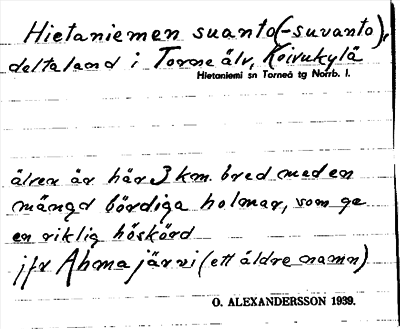 Hietaniemen suanto (-suvanto),
deltaland i Torne älv, Koivukylä
Hietaniemi sn Torneå tg Norrb. l.
älven är här 3 km. bred med en
mängd bördiga holmar, som ge
en riklig höskörd
jfr Ahmajärvi (ett äldre namn)
O. ALEXANDERSSON 1939.